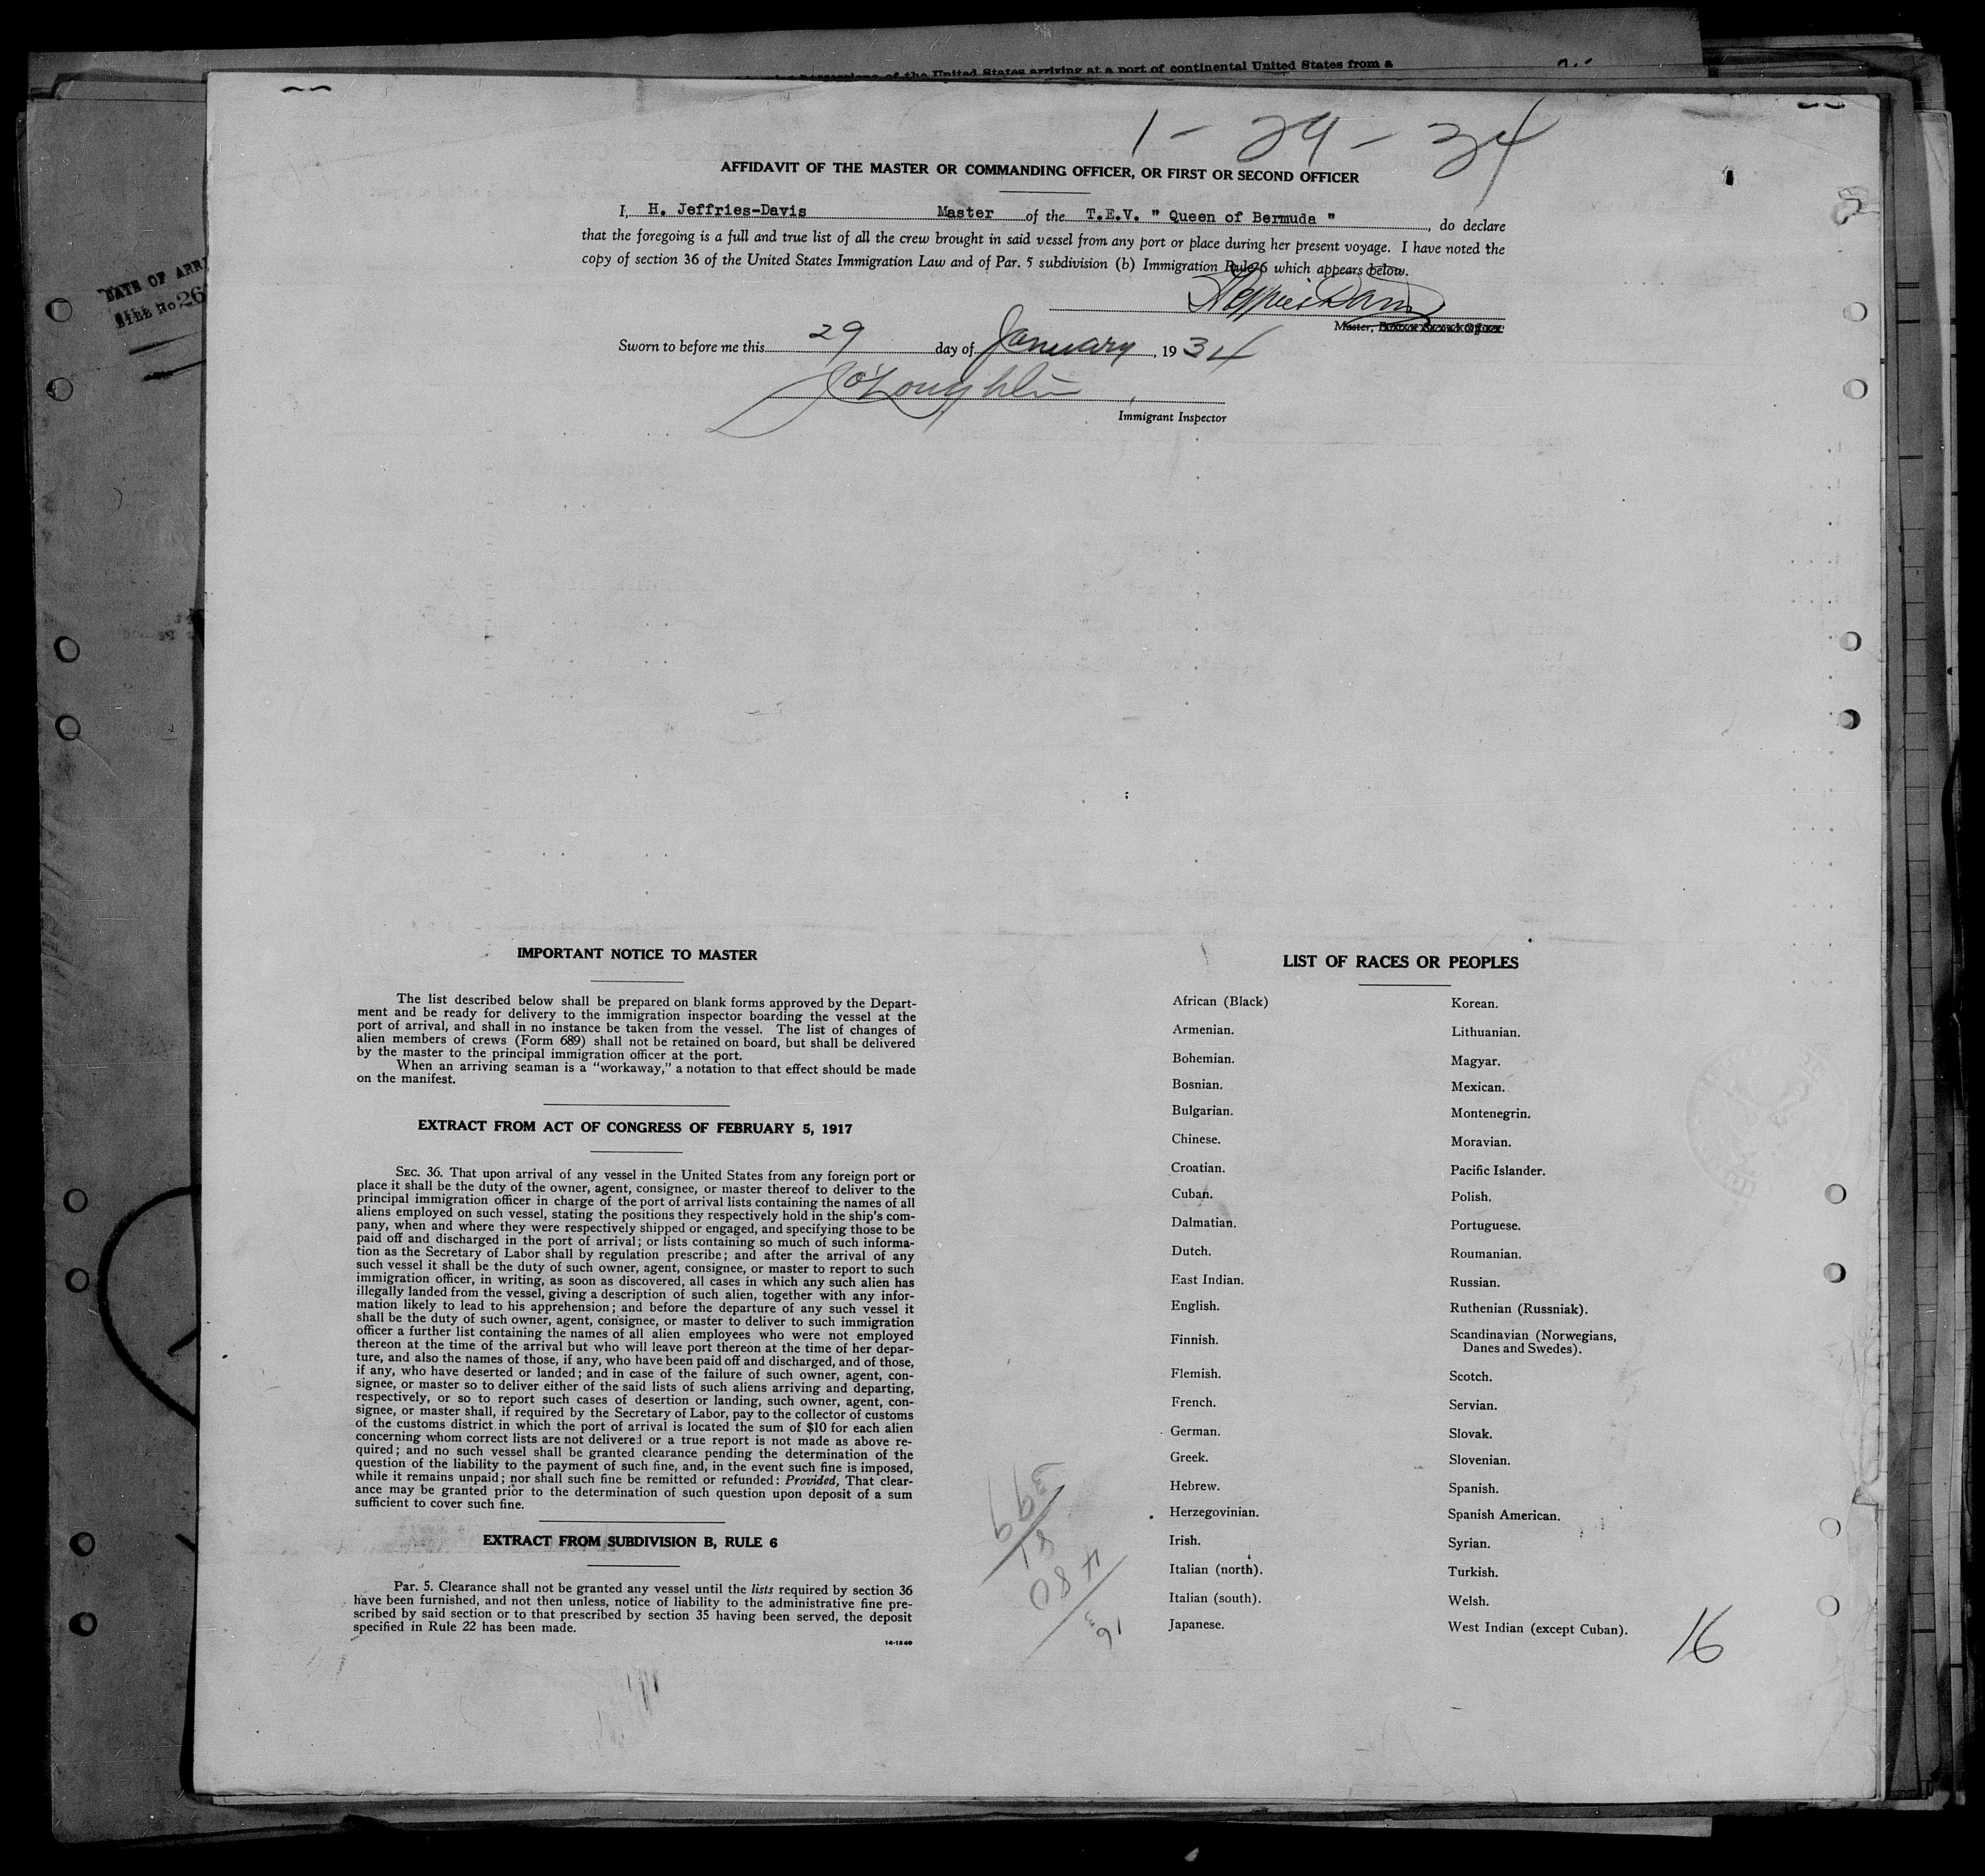 possessions of the United States arriving at a port of continental United States from a
1-29-34
AFFIDAVIT OF THE MASTER OR COMMANDING OFFICER, OR FIRST OR SECOND OFFICER
I, H. Jeffries-Davis Master of the T.E.V. " Queen of Bermuda ", do declare
that the foregoing is a full and true list of all the crew brought in said vessel from any port or place during her present voyage. I have noted the
copy of section 36 of the United States Immigration Law and of Par. 5 subdivision (b) Immigration Rule 6 which appears below.
Master, First or Second Officer
Sworn to before me this 29 day of January, 1934
J O'Loughlin
Immigrant Inspector
DATE OF ARRI
FILE No 26
IMPORTANT NOTICE TO MASTER
The list described below shall be prepared on blank forms approved by the Depart-
ment and be ready for delivery to the immigration inspector boarding the vessel at the
port of arrival, and shall in no instance be taken from the vessel. The list of changes of
alien members of crews (Form 689) shall not be retained on board, but shall be delivered
by the master to the principal immigration officer at the port.
When an arriving seaman is a "workaway," a notation to that effect should be made
on the manifest.
EXTRACT FROM ACT OF CONGRESS OF FEBRUARY 5, 1917
SEC. 36. That upon arrival of any vessel in the United States from any foreign port or
place it shall be the duty of the owner, agent, consignee, or master thereof to deliver to the
principal immigration officer in charge of the port of arrival lists containing the names of all
aliens employed on such vessel, stating the positions they respectively hold in the ship's com-
pany, when and where they were respectively shipped or engaged, and specifying those to be
paid off and discharged in the port of arrival; or lists containing so much of such informa-
tion as the Secretary of Labor shall by regulation prescribe; and after the arrival of any
such vessel it shall be the duty of such owner, agent, consignee, or master to report to such
immigration officer, in writing, as soon as discovered, all cases in which any such alien has
illegally landed from the vessel, giving a description of such alien, together with any infor-
mation likely to lead to his apprehension; and before the departure of any such vessel it
shall be the duty of such owner, agent, consignee, or master to deliver to such immigration
officer a further list containing the names of all alien employees who were not employed
thereon at the time of the arrival but who will leave port thereon at the time of her depar-
ture, and also the names of those, if any, who have been paid off and discharged, and of those,
if any, who have deserted or landed; and in case of the failure of such owner, agent, con-
signee, or master so to deliver either of the said lists of such aliens arriving and departing,
respectively, or so to report such cases of desertion or landing, such owner, agent, con-
signee, or master shall, if required by the Secretary of Labor, pay to the collector of customs
of the customs district in which the port of arrival is located the sum of $10 for each alien
concerning whom correct lists are not delivered or a true report is not made as above re-
quired; and no such vessel shall be granted clearance pending the determination of the
question of the liability to the payment of such fine, and, in the event such fine is imposed,
while it remains unpaid; nor shall such fine be remitted or refunded: Provided, That clear-
ance may be granted prior to the determination of such question upon deposit of a sum
sufficient to cover such fine.
EXTRACT FROM SUBDIVISION B, RULE 6
Par. 5. Clearance shall not be granted any vessel until the lists required by section 36
have been furnished, and not then unless, notice of liability to the administrative fine pre-
scribed by said section or to that prescribed by section 35 having been served, the deposit
specified in Rule 22 has been made.
14-1240
LIST OF RACES OR PEOPLES
African (Black)
Armenian.
Bohemian.
Bosnian.
Bulgarian.
Chinese.
Croatian.
Cuban.
Dalmatian.
Dutch.
East Indian.
English.
Finnish.
Flemish.
French.
German.
Greek.
Hebrew.
Herzegovinian.
Irish.
Italian (north).
Italian (south).
Japanese.
Korean.
Lithuanian.
Magyar.
Mexican.
Montenegrin.
Moravian.
Pacific Islander.
Polish.
Portuguese.
Roumanian.
Russian.
Ruthenian (Russniak).
Scandinavian (Norwegians,
Danes and Swedes).
Scotch.
Servian.
Slovak.
Slovenian.
Spanish.
Spanish American.
Syrian.
Turkish.
Welsh.
West Indian (except Cuban).
399
81
480
16